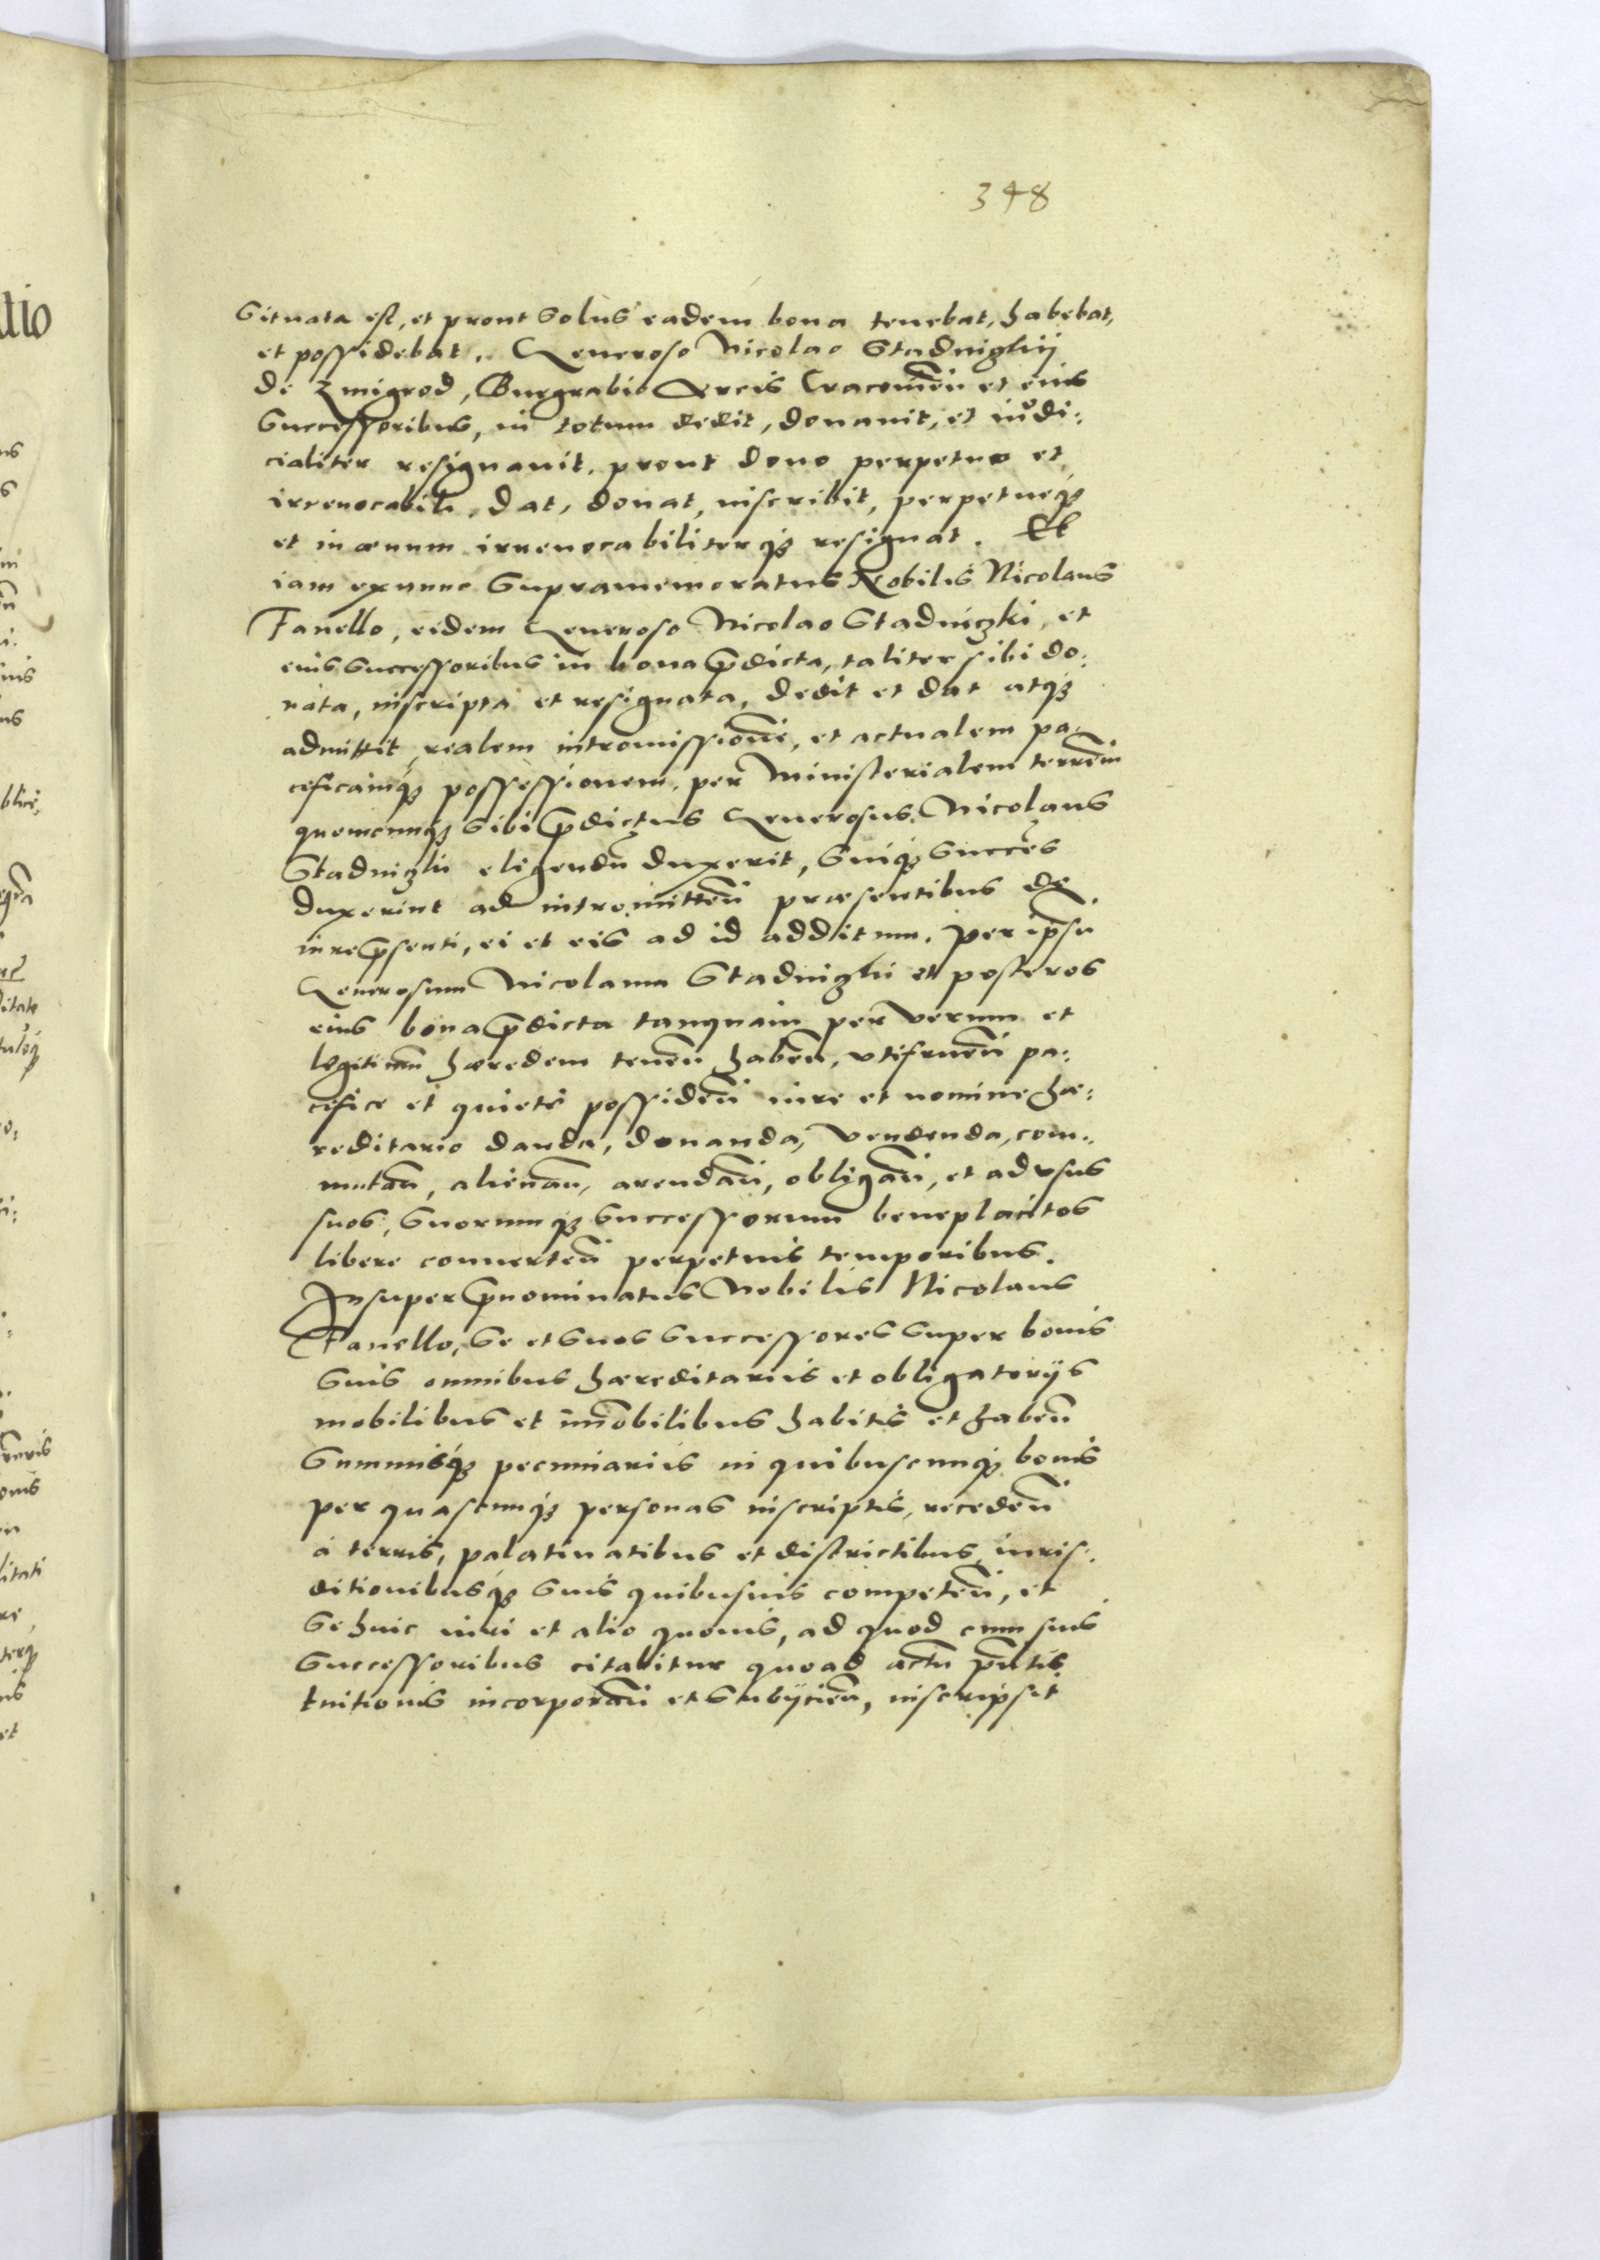 348
situata est, et prout solus eadem bona tenebat, habebat,
et possidebat. Generoso Nicolao Stadniczkij
de Zmigrod, Burgrabio Arcis Cracovien̄ et eius
Successoribus, in totum dedit, donauit, et iudi:
cialiter resignauit, prout dono perpetuo et
irreuocabili, dat, donat, inscribit, perpetueq;
et in æuum irreuocabiliterq; resignat. Et
iam exnunc Supramemoratus Nobilis Nicolaus
Fanello, eidem Generoso Nicolao Stadniczki, et
eius Successoribus in bona p̄dicta, taliter sibi do:
nata, inscripta et resignata, dedit et dat atq;
admittit, realem intromissionē, et actualem pa:
cificamq; possessionem, per Ministerialem terrēm
quemcunq; sibi p̄dictus Generosus Nicolaus
Stadniczki eligendū duxerit, Suiq; Succes
duxerint ad intromitteñ præsentibus de
in re p̄senti, ei et eis ad id additum. Per ipsū
Generosum Nicolaum Stadniczki et posteros
eius bona p̄dicta tanquam per verum et
legitimū hæredem teneñ habeñ, vtifrueñ pa:
cifice et quiete possideñ iure et nomine hæ:
reditario danda, donanda, vendenda, com:
mutañ, alienañ, arendañ, obligañ, et ad vsus
suos, Suorumq; Successorum beneplacitos
libere conuerteñ perpetuis temporibus.
Insuper p̄nominatus Nobilis Nicolaus
Fanello, Se et Suos Successores Super bonis
Suis omnibus hæreditariis et obligatorijs
mobilibus et im̄obilibus habitis et habeñ
Summisq; pecuniariis in quibuscunq; bonis
per quascunq; personas inscriptis, recedeñ
à terris, palatinatibus et districtibus, iuris:
ditionibusq; Suis quibusuis competeñ, et
Se huic iuri et alio quouis, ad quod cum suis
Successoribus citabitur quoad actū p̄ntis
tuitionis incorporañ et Subijcieñ, inscripsit